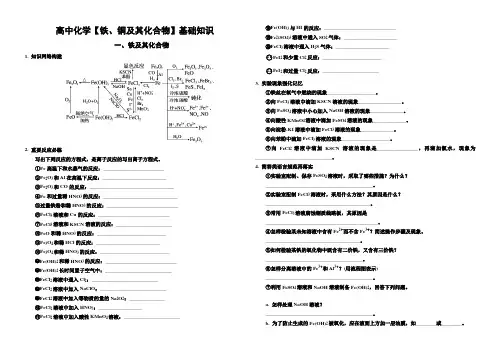 高中化学【铁、铜及其化合物】基础知识
一、铁及其化合物
1. 知识网络构建
2. 重要反应必练
写出下列反应的方程式，是离子反应的写出离子方程式。
①Fe 高温下和水蒸气的反应：
②Fe₂O₃ 和 Al 在高温下反应：
③Fe₂O₃ 和 CO 的反应：
④Fe 和过量稀 HNO₃ 的反应：
⑤过量铁屑和稀 HNO₃ 的反应：
⑥FeCl₃ 溶液和 Cu 的反应：
⑦FeCl₃ 溶液和 KSCN 溶液的反应：
⑧FeO 和稀 HNO₃ 的反应：
⑨Fe₃O₄ 和稀 HCl 的反应：
⑩Fe₃O₄ 和稀 HNO₃ 的反应：
⑪Fe(OH)₂ 和稀 HNO₃ 的反应：
⑫Fe(OH)₂ 长时间置于空气中：
⑬FeCl₂ 溶液中通入 Cl₂：
⑭FeCl₂ 溶液中加入 NaClO：
⑮FeCl₂ 溶液中加入等物质的量的 Na₂O₂：
⑯FeCl₂ 溶液中加入 HNO₃：
⑰FeCl₂ 溶液中加入酸性 KMnO₄ 溶液：
⑱Fe(OH)₃ 与 HI 的反应：
FeCl₃ 溶液中通入 H₂S 气体：
FeI₂ 和少量 Cl₂ 反应：
FeI₂ 和过量 Cl₂ 反应：
3. 实验现象强化记忆
①铁丝在氧气中燃烧的现象
②向 FeCl₃ 溶液中滴加 KSCN 溶液的现象
③向 FeSO₄ 溶液中小心加入 NaOH 溶液的现象
④向酸性 KMnO₄ 溶液中滴加 FeSO₄ 溶液的现象
⑤向淀粉-KI 溶液中滴加 FeCl₃ 溶液的现象
⑥向苯酚中滴加 FeCl₃ 溶液的现象
⑦向 FeCl₂ 溶液中滴加 KSCN 溶液的现象是，再滴加氯水，现象为
。
4. 简答类语言规范再落实
①实验室配制、保存 FeSO₄ 溶液时，采取了哪些措施？为什么？
②实验室配制 FeCl₃ 溶液时，采用什么方法？其原因是什么？
③常用 FeCl₃ 溶液腐蚀铜质线路板，其原因是
④怎样检验某未知溶液中含有 Fe²⁺而不含 Fe³⁺？简述操作步骤及现象。
⑤如何检验某铁的氧化物中既含有二价铁，又含有三价铁？
⑥怎样分离溶液中的 Fe³⁺和 Al³⁺？(用流程图表示)
⑦利用 FeSO₄ 溶液和 NaOH 溶液制备 Fe(OH)₂，回答下列问题。
a. 怎样处理 NaOH 溶液？
b. 为了防止生成的 Fe(OH)₂ 被氧化，应在液面上方加一层物质，如或。